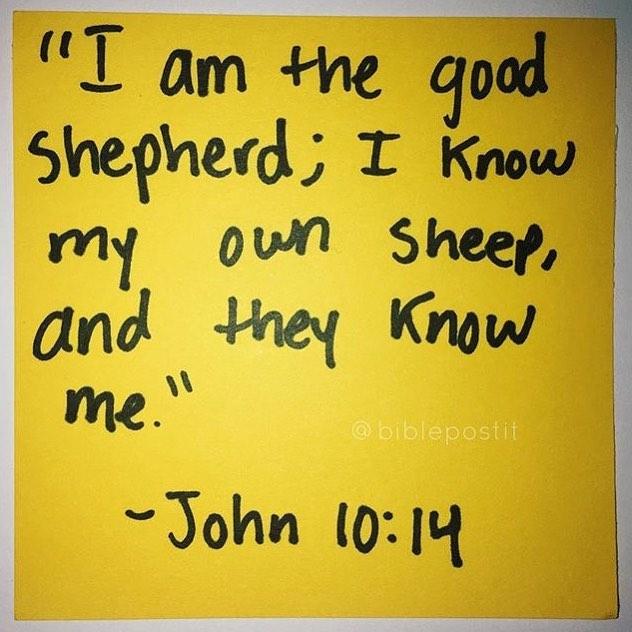 "I am the good
shepherd; I know
my own sheep,
and they know
me."
@biblepostit
-John 10:14